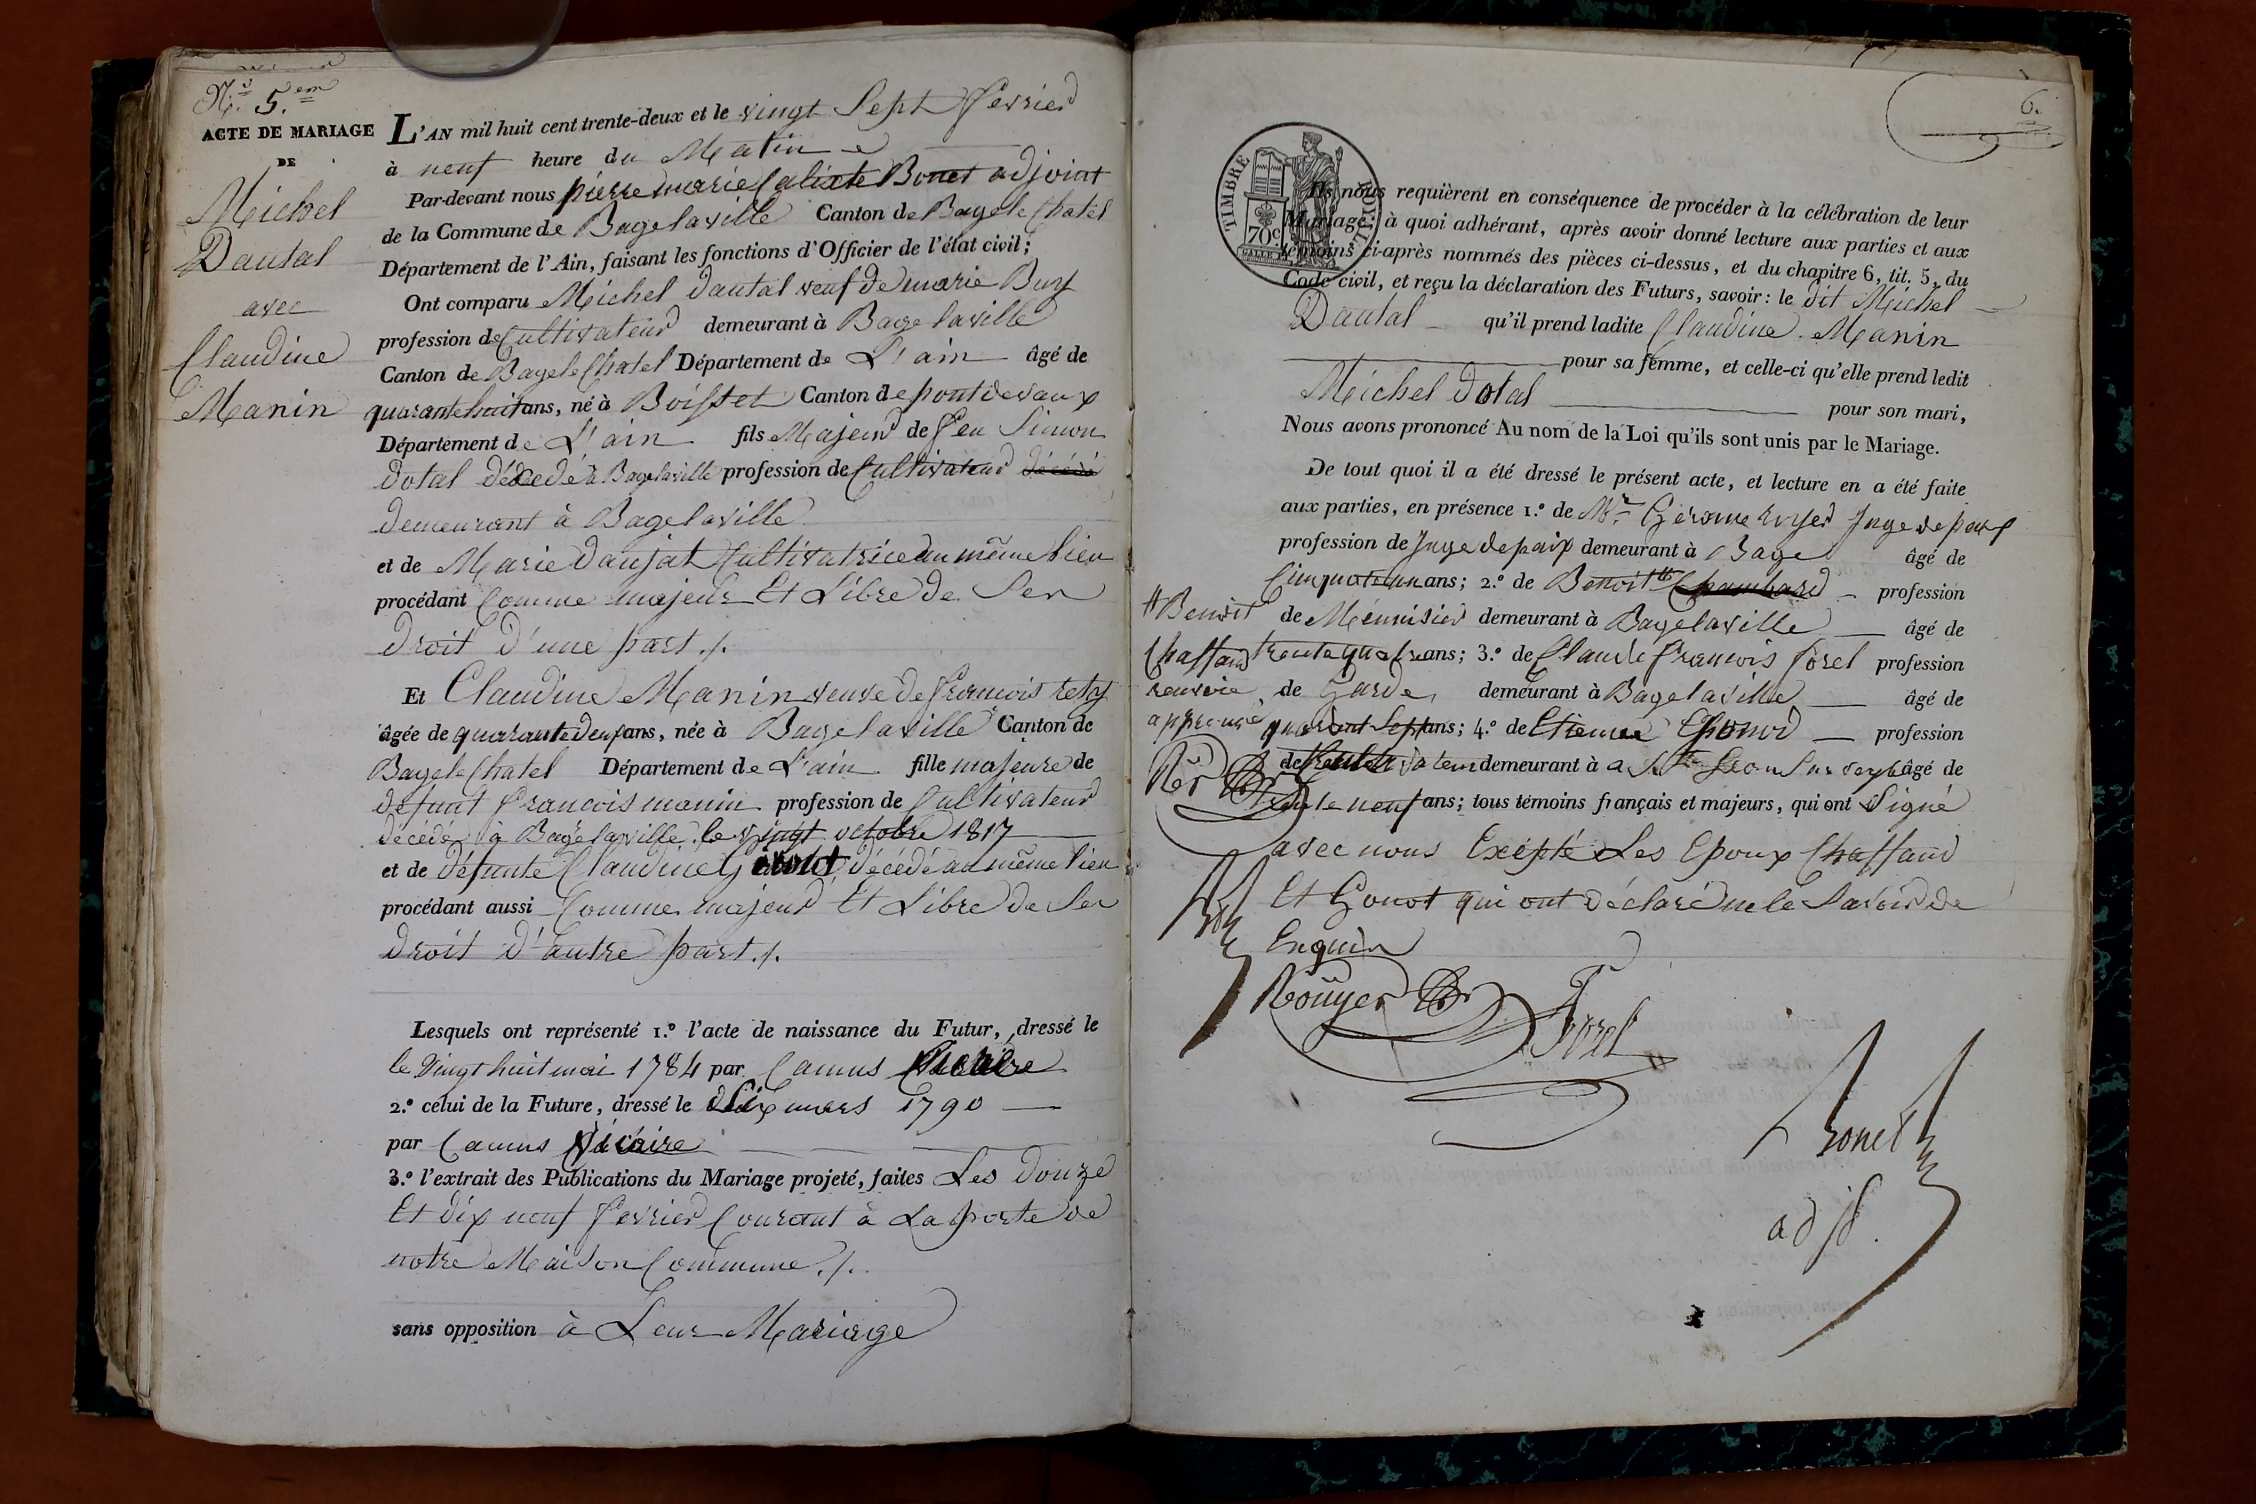 N.º 5.em
ACTE DE MARIAGE
DE
Michel
Dautal
avec
Claudine
Manin
L'AN mil huit cent trente-deux et le vingt Sept fevrier
à neuf heure du Matin
Par-devant nous pierre marie Calixte Bonet adjoint
de la Commune de Bagelaville Canton de Bagelechatel
Département de l'Ain, faisant les fonctions d'Officier de l'état civil;
Ont comparu Michel dautal veuf de marie Buy
profession de Cultivateur demeurant à Bagelaville
Canton de Bagelechatel Département de L'ain âgé de
quarantehuit ans, né à Boisset Canton de pontdevaux
Département de L'ain fils Majeur de feu Simon
dotal décedé à Bagelaville profession de Cultivateur décédé
demeurant à Bagelaville
et de Marie daujat Cultivatrice au même lieu
procédant Comme majeur Et Libre de Ser
droit d'une part ./.
Et Claudine Manin veuve de francois tety
âgée de quarantedeux ans, née à Bagelaville Canton de
Bagelechatel Département de L'ain fille majeure de
defunt francois manin profession de Cultivateur
décédé à Bagelaville le vingt octobre 1817
et de défunte Claudine décédé au même lieu
procédant aussi Comme majeur Et Libre de Ser
droit d'autre part ./.
Lesquels ont représenté 1.º l'acte de naissance du Futur, dressé le
le Vingt huit mai 1784 par Camus Vicaire
2.º celui de la Future, dressé le dix mars 1790
par Camus Vicaire
3.º l'extrait des Publications du Mariage projeté, faites Les douze
Et dix neuf fevrier Courant à La porte de
notre Maison Commune ./.
sans opposition à Leur Mariage
6.
TIMBRE ROYAL
70c
Ils nous requièrent en conséquence de procéder à la célébration de leur
Mariage; à quoi adhérant, après avoir donné lecture aux parties et aux
témoins ci-après nommés des pièces ci-dessus, et du chapitre 6, tit. 5, du
Code civil, et reçu la déclaration des Futurs, savoir: le dit Michel
Dautal qu'il prend ladite Claudine Manin
pour sa femme, et celle-ci qu'elle prend ledit
Michel dotal pour son mari,
Nous avons prononcé Au nom de la Loi qu'ils sont unis par le Mariage.
De tout quoi il a été dressé le présent acte, et lecture en a été faite
aux parties, en présence 1.º de Mr Gérome royer Juge de paix
profession de Juge de paix demeurant à Bage âgé de
Cinquante ans; 2.º de Benoit Chambard profession
deMénuisier demeurant à Bagelaville âgé de
trentequatre ans; 3.º de Claude francois forel profession
de Garde demeurant à Bagelaville âgé de
quarant Sept ans; 4.º de Etienne profession
de Cultivateur demeurant à a St Jean Sur veyle âgé de
trente neuf ans; tous témoins français et majeurs, qui ont Signé
avec nous Excépté Les Epoux Chaffaud
Et Gonot qui ont déclaré ne le Savoir de
Enquis
# Benoit
Chaffaud
renvoie
approuvé
Rouyer
Forel
Bonet
adj.